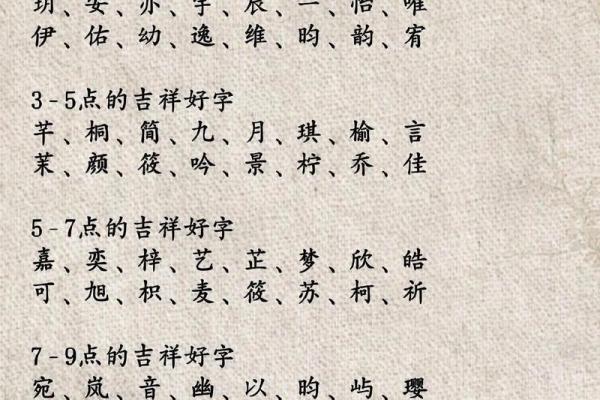 玥、安、亦、宇、辰、一、怡、唯
伊、佑、幼、逸、维、昀、韵、宥
3-5点的吉祥好字
芊、桐、简、九、月、琪、榆、言
茉、颜、筱、吟、景、柠、乔、佳
5-7点的吉祥好字
嘉、奕、梓、艺、芷、梦、欣、皓
可、旭、枳、麦、筱、苏、柯、祈
7-9点的吉祥好字
宛、岚、音、幽、以、昀、屿、璎